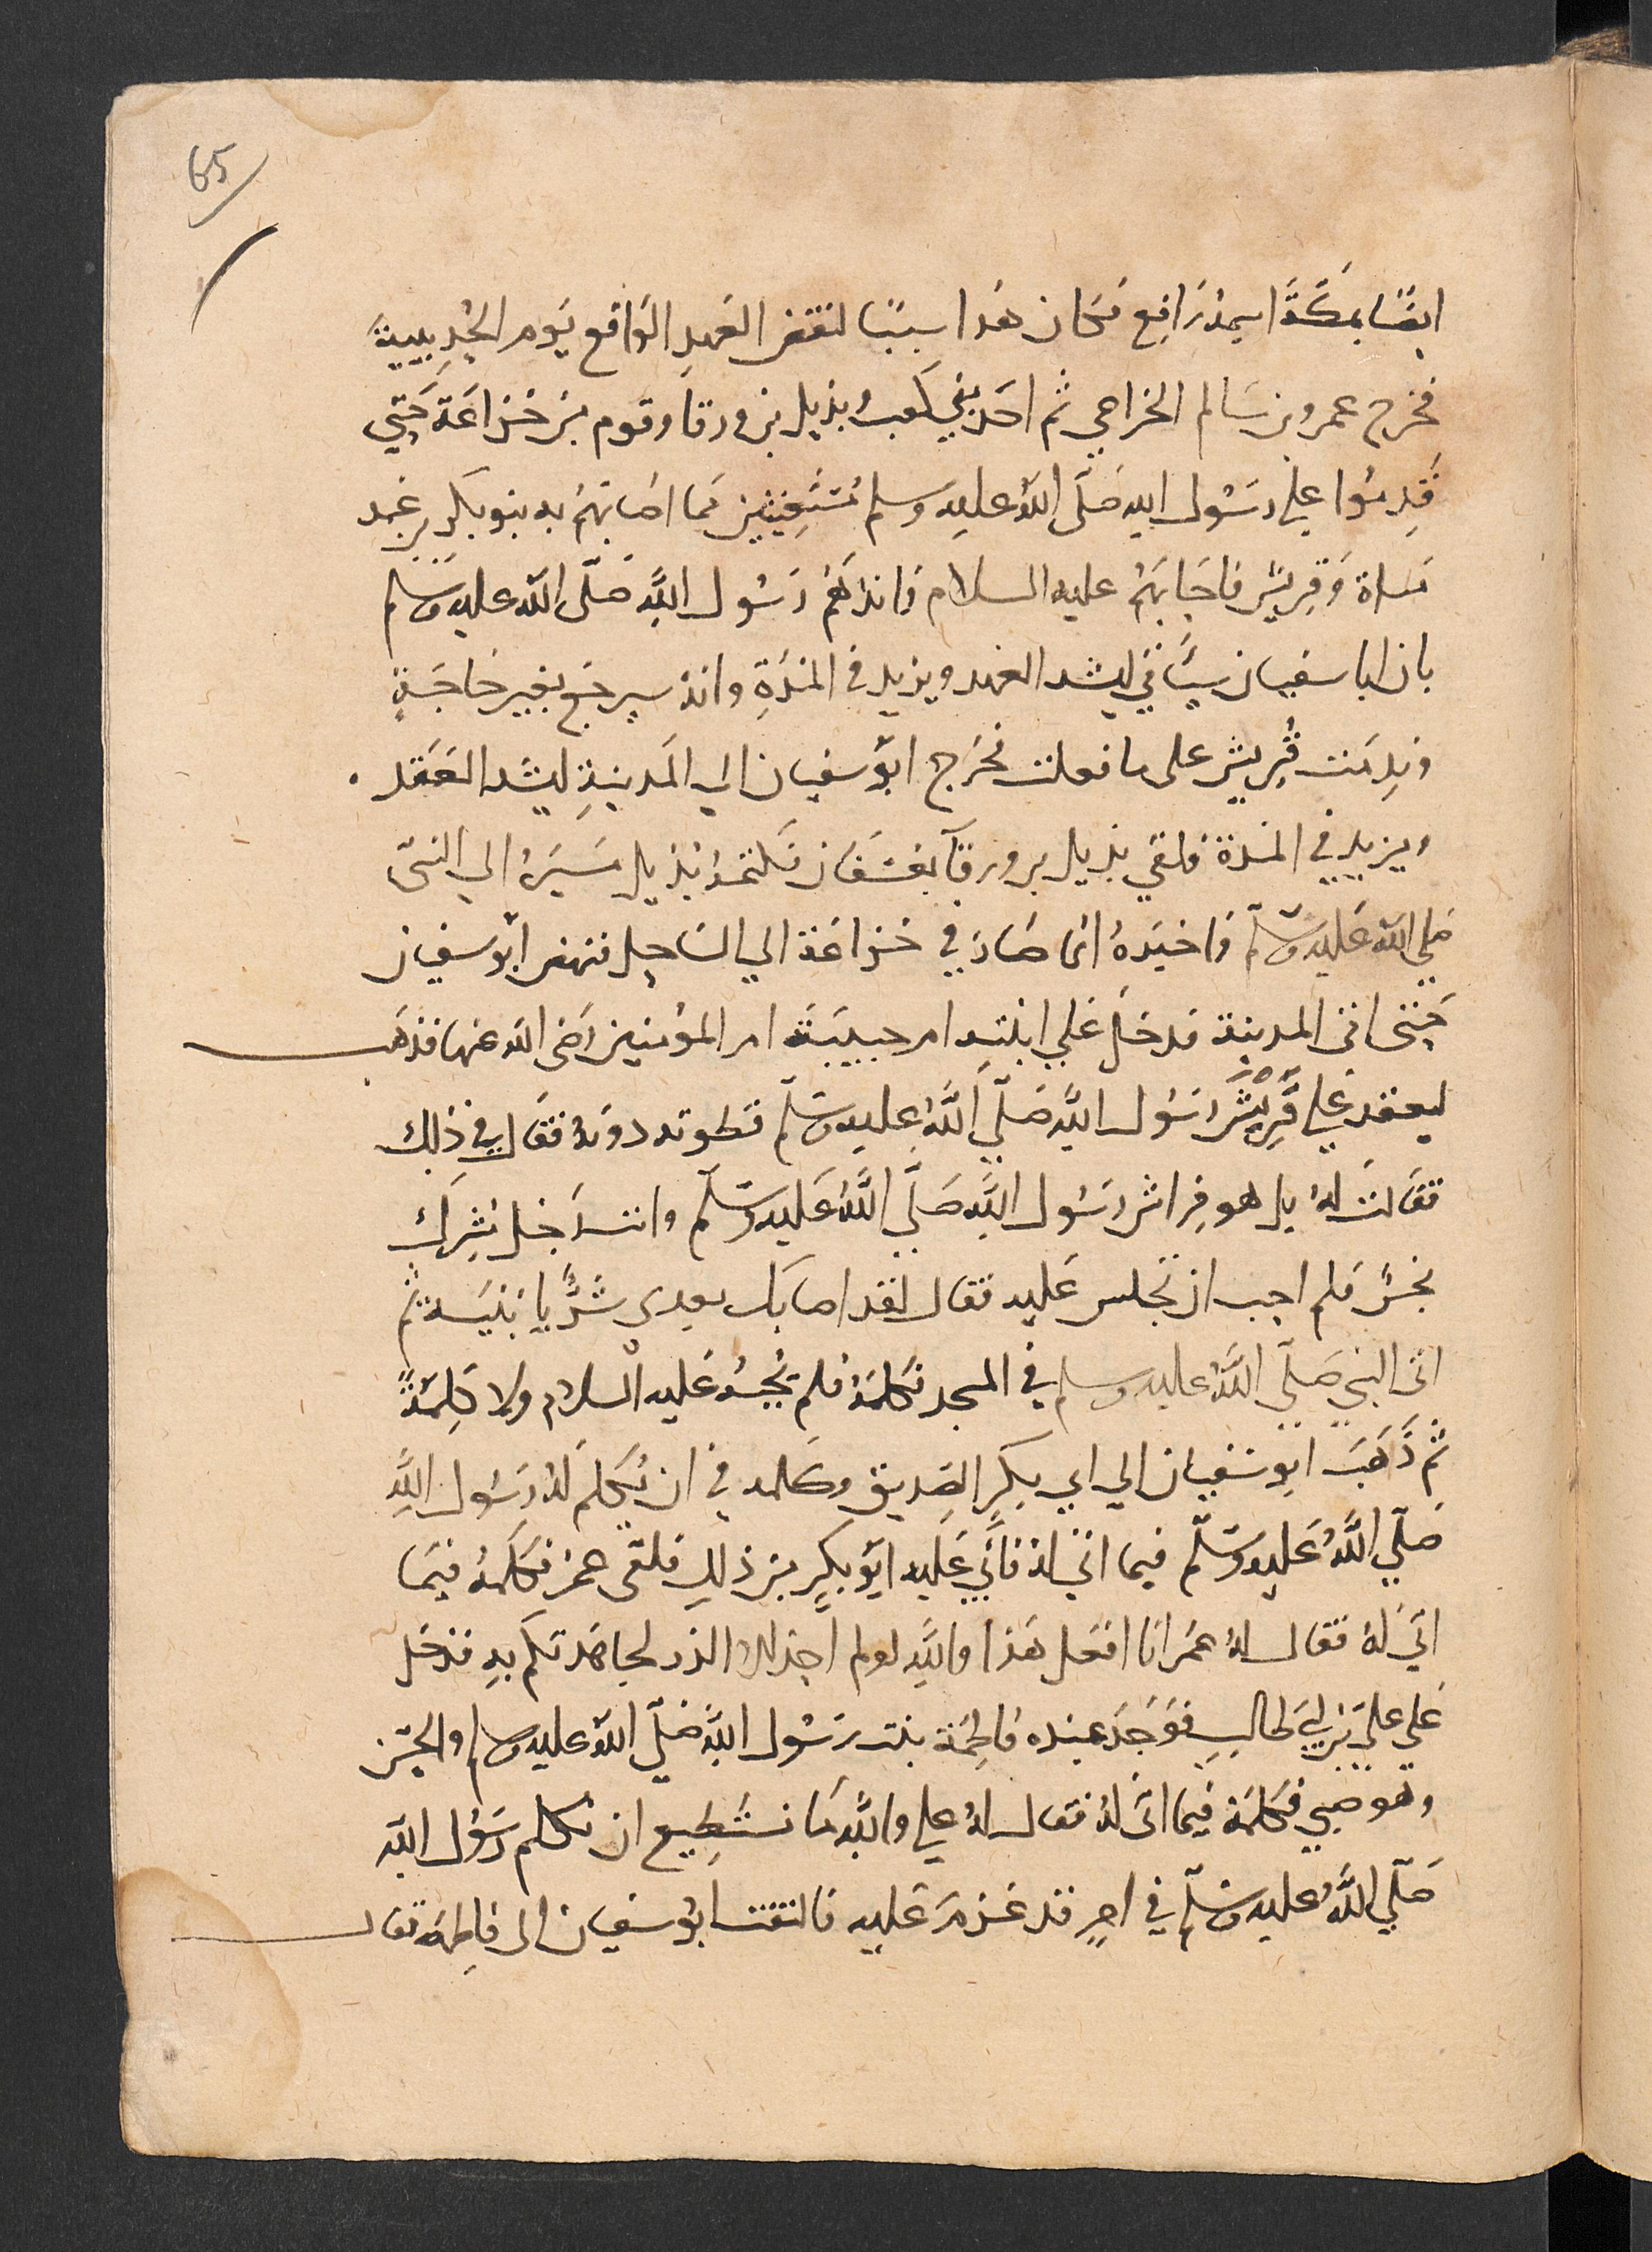 65
ايضًا بمكَّةَ اسمه رَافِع فكان هَذا سببًا لنقض العَهدِ الوَاقع يَوم الحُدِيبيةَ
فخرج عمرو بن سَالم الخزاعي ثم احَد بني كَعب وبديل بن ورقا وقوم مِن خزاعَة حَتي
قَدِموُا علي رسَوُل الله صَلَّى اللهُ عليهِ وسلم مُستَغِيثين مما اصَابَهُم به بنو بكرِ بن عَبد
مَناة وَقريش فاجَابَهُم عليه السلام وَانذرَهُم رَسُول اللَّهِ صَلَّى اللهُ عليه وسَلم
بان ابا سفيان سيَاتي ليشد العَهد ويزيد في المدَةِ وانهُ سيرجَع بغير حَاجَةٍ
ونَدِمَت قُريش على ما فعلت فخرَج ابوُ سفيان الي المَدينَةِ ليشد العَقد .
ويزيد في المدة فلقي بديل بن ورقآ بعسفَان فكتمهُ بُدَيل مَسيرَهُ الي النبّى
صَلي اللهُ عَليه وسَلَّم وَاخبَرهُ انمَا صَارَ في خزاعَة الي السَاحِل فنهض ابوُ سفيان
حَتى اتى المدينة فدخَلَ عَلي ابنتهِ ام حبيبَة ام المؤمنين رَضى الله عنها فذهَب
ليقعد علي فِرَاشِ رَسُول اللَّهِ صَلَّي اللَّهُ عليه وسَلم فطوته دونهُ فقَال في ذلِك
فقالت لهُ بل هو فِراش رسَوُل اللَّهِ صَلَّي اللَّهُ عَليه وسَلَّم وانت رَجُل مُشِرك
نجسٌ فلم احب ان تجلس عَليه فقال لقد اصَابَك بعدى شَرٌّ يا بُنَيَّة ثم
اتى النبي صَلّي اللَّهُ عليه وسلم في المسجد فكلمَهُ فلم يُجبهُ عَليه السلام ولا كَلِمَةً
ثم ذَهَبَ ابو سفيان الي ابي بكرٍ الصّديق وكلمه في ان يُكلِم لهُ رسَوُل اللَّهِ
صَلّي اللَّهُ عَليه وسَلّم فيما اتي لهُ فأبي عَليه ابَوُ بكرٍ مِن ذلِك فلقى عمرَ فكلمَهُ فيَما
اتي لهُ فقال لهُ عمَر انا افعَل هَذا واللَّهِ لولم اجد الا الذر لجاهَدتكم بهِ فدخَل
عَلي عليّ بن ابي طَالبٍ فوَجَد عنِده فاطِمَة بنت رَسُول اللَّهِ صَلّي اللهُ عليه وسلم والحسَن
وهو صَبي فكلمَهُ فيما اتى لهُ فقال لهُ علي واللَّهِ مَا نستَطِيع ان نكلم رَسُول الله
صَلّي اللَّهُ عليه وسَلّم في امرٍ قد عَزم عَليه فالتفت ابوُ سفيان الى فاطِمة فقال